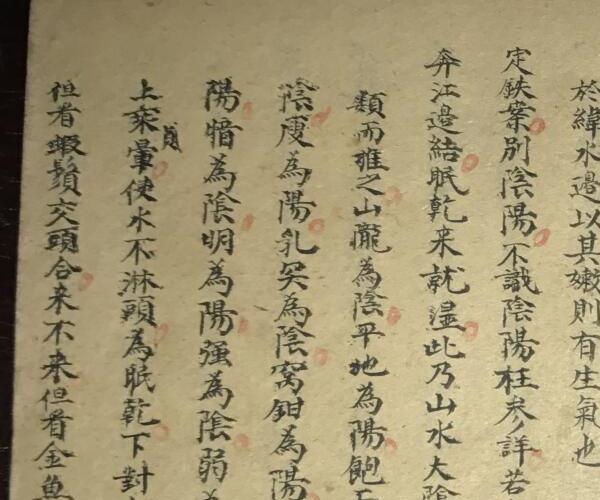 於緯水邊以其嫩則有生氣也
定鉄案別陰陽不識陰陽枉参詳若
奔江邊結眠乾来就湿此乃山水大陰
類而推之山隴為陰平地為陽飽
陰廋為陽乳突為陰窩鉗為陽
陽暗為陰明為陽强為陰弱為
上乘暈使水不淋頭為眠乾下對
但看蝦鬚交頭合来不来但看金魚